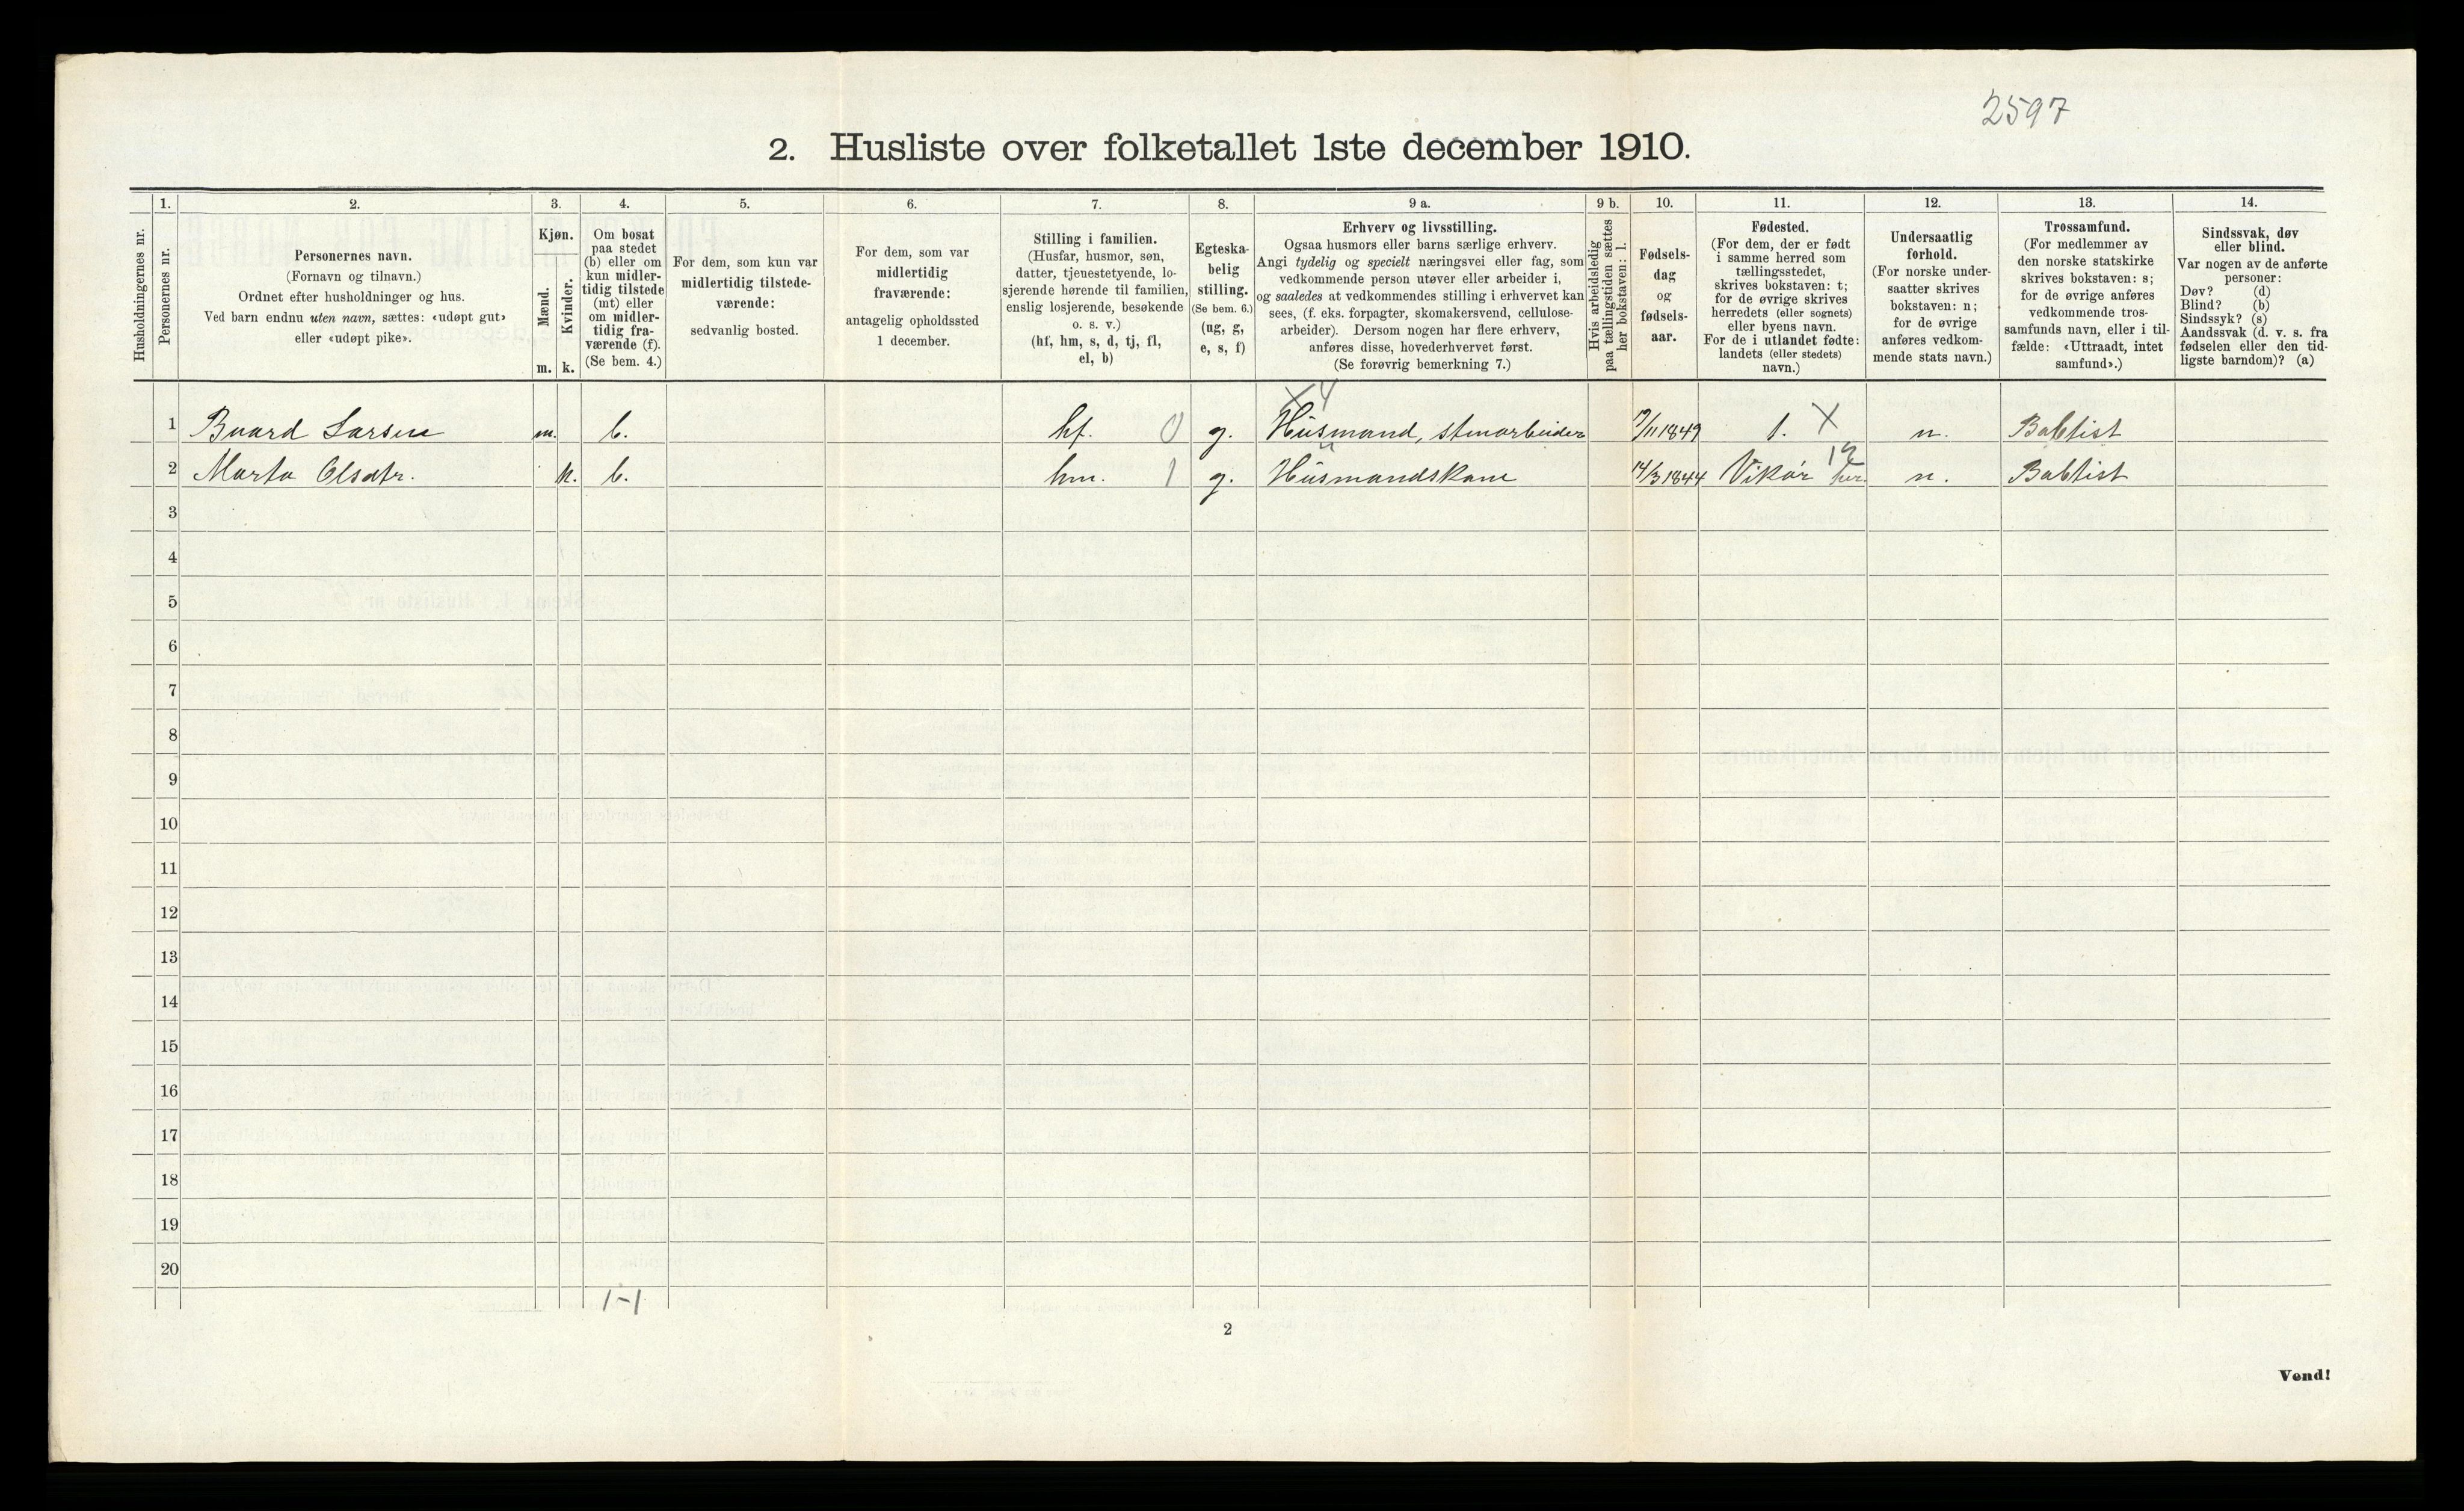 2597
2. Husliste over folketallet 1ste december 1910.
Husholdningernes nr.
1.
Personernes nr.
2.
Personernes navn.
(Fornavn og tilnavn.)
Ordnet efter husholdninger og hus.
Ved barn endnu uten navn, sættes: «udøpt gut»
eller «udøpt pike».
3.
Kjøn.
Mænd.
Kvinder.
m. k.
4.
Om bosat
paa stedet
(b) eller om
kun midler-
tidig tilstede
(mt) eller
om midler-
tidig fra-
værende (f).
(Se bem. 4.)
5.
For dem, som kun var
midlertidig tilstede-
værende:
sedvanlig bosted.
6.
For dem, som var
midlertidig
fraværende:
antagelig opholdssted
1 december.
7.
Stilling i familien.
(Husfar, husmor, søn,
datter, tjenestetyende, lo-
sjerende hørende til familien,
enslig losjerende, besøkende
o. s. v.)
(hf, hm, s, d, tj, fl,
el, b)
8.
Egteska-
belig
stilling.
(Se bem. 6.)
(ug, g,
e, s, f)
9 a.
Erhverv og livsstilling.
Ogsaa husmors eller barns særlige erhverv.
Angi tydelig og specielt næringsvei eller fag, som
vedkommende person utøver eller arbeider i,
og saaledes at vedkommendes stilling i erhvervet kan
sees, (f. eks. forpagter, skomakersvend, cellulose-
arbeider). Dersom nogen har flere erhverv,
anføres disse, hovederhvervet først.
(Se forøvrig bemerkning 7.)
9 b.
Hvis arbeidsledig
paa tællingstiden sættes
her bokstaven: l.
10.
Fødsels-
dag
og
fødsels-
aar.
11.
Fødested.
(For dem, der er født
i samme herred som
tællingsstedet,
skrives bokstaven: t;
for de øvrige skrives
herredets (eller sognets)
eller byens navn.
For de i utlandet fødte:
landets (eller stedets)
navn.)
12.
Undersaatlig
forhold.
(For norske under-
saatter skrives
bokstaven: n;
for de øvrige
anføres vedkom-
mende stats navn.)
13.
Trossamfund.
(For medlemmer av
den norske statskirke
skrives bokstaven: s;
for de øvrige anføres
vedkommende tros-
samfunds navn, eller i til-
fælde: «Uttraadt, intet
samfund».)
14.
Sindssvak, døv
eller blind.
Var nogen av de anførte
personer:
Døv? (d)
Blind? (b)
Sindssyk? (s)
Aandssvak (d. v. s. fra
fødselen eller den tid-
ligste barndom)? (a)
X 4
1 Baard Larsen m. b. hf. 0 g. Husmand, stenarbeider /11 1849 t. X n. Babtist
2 Marta Olsdtr. k. b. hm. 1 g. Husmandskone 14/3 1844 Vikør her. 12 n. Babtist
3
4
5
6
7
8
9
10
11
12
13
14
15
16
17
18
19
20
1-1
2
Vend!